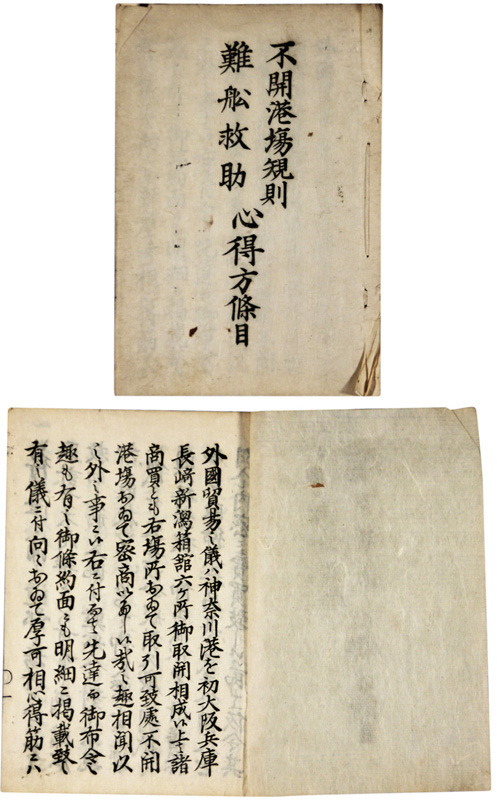 不開港塲規則
難舩救助
心得方條目
外國貿易之儀ハ神奈川港を初大阪兵庫
長崎新潟箱館六ケ所御取開相成候上ハ諸
商買とも右塲所おゐて取引可致處不開
港塲おゐて密商いたし候哉之趣相聞以
之外之事ニ候右ニ付而ハ先達而御布令之
趣も有之御條約面ニも明細ニ掲載致し
有之儀ニ付向々おゐて厚可相心得筋ニハ